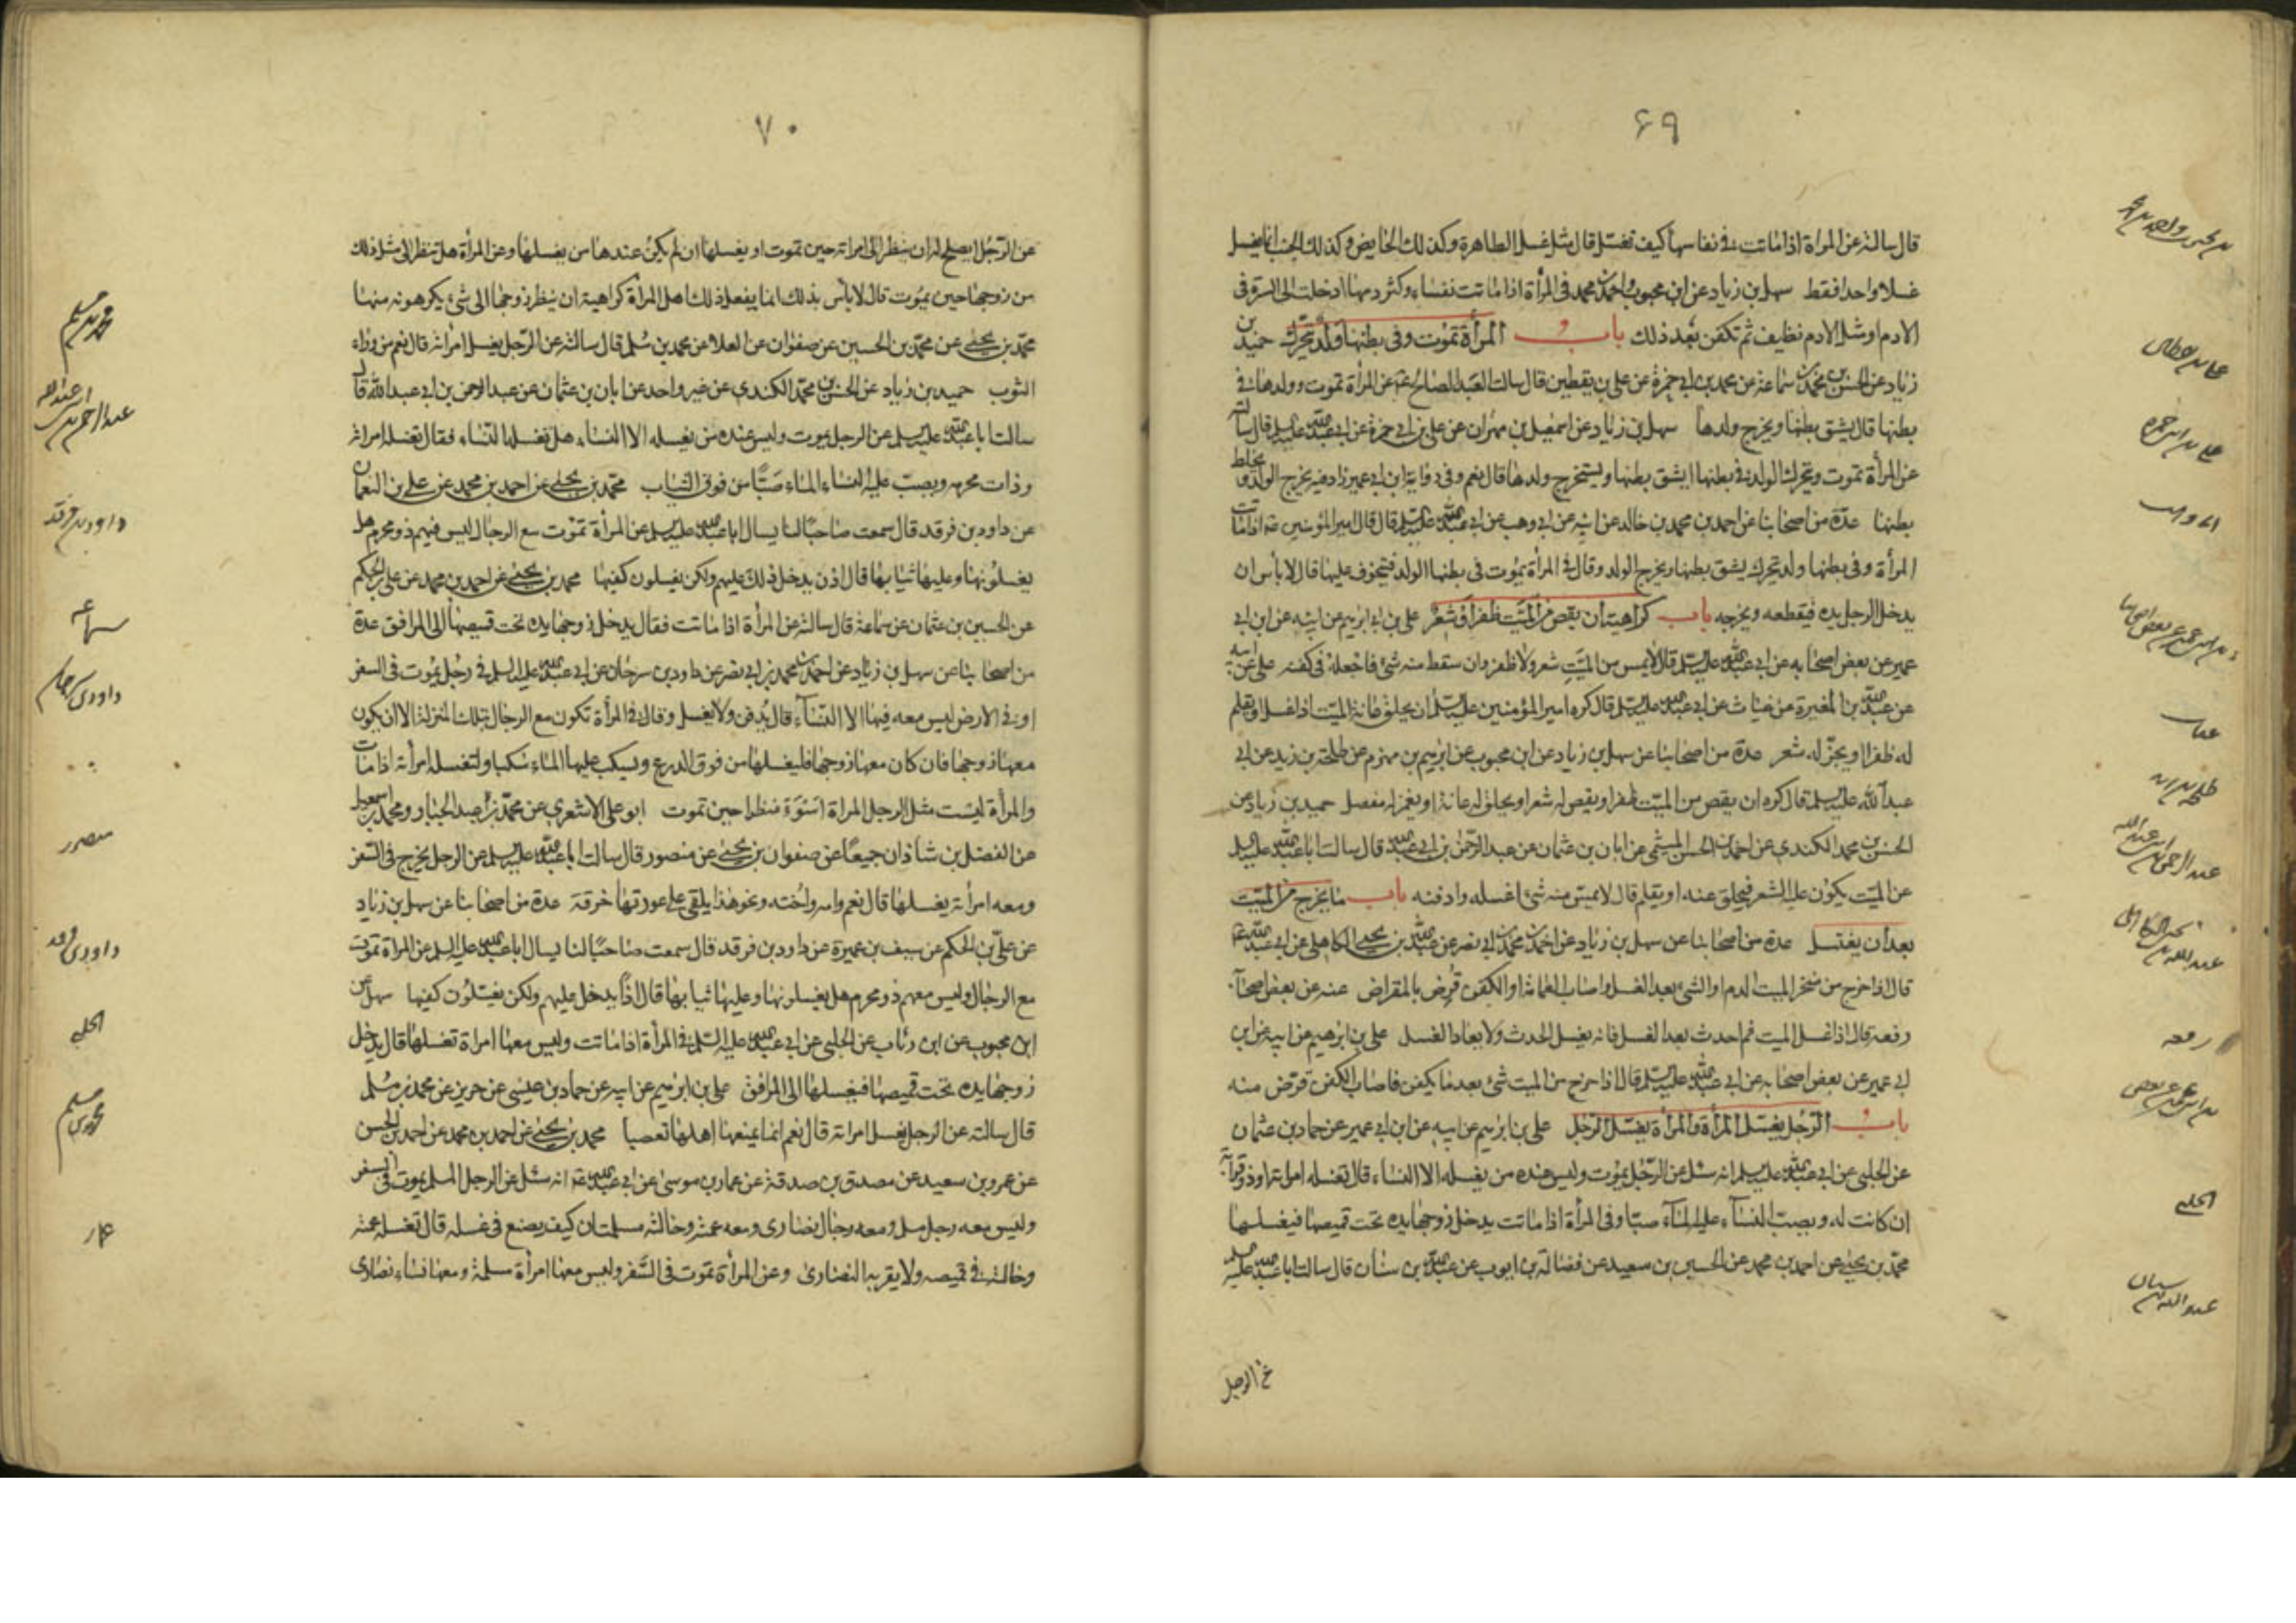 ۶۹
قال سالته عن المراة اذا ماتت فى نفاسها كيف تغتسل قال مثل غسل الطاهرة وكذلك الحايض وكذلك الجنب انما يغسل
غسلا واحدا فقط سهل بن زياد عن ابن محبوب واحمد بن محمد فى المرأة اذا ماتت نفساء وكثر دمها ادخلت الى السرة فى
الادم او مثل الادم نظيف ثم تكفن بعد ذلك باب المرأة تموت وفى بطنها ولد يتحرك حميد بن
زياد عن الحسن بن محمد بن سماعة عن محمد بن ابى حمزة عن على بن يقطين قال سالت العبد الصالح عن المرأة تموت وولدها فى
بطنها قال يشق بطنها ويخرج ولدها سهل بن زياد عن اسمعيل بن مهران عن على بن ابى حمزة عن ابى عبد الله عليه السلم قال سالته
عن المرأة تموت ويتحرك الولد فى بطنها ايشق بطنها ويستخرج ولدها قال نعم وفى رواية ابن ابى عمير زاد فيه يخرج الولد ويخاط
بطنها عدة من اصحابنا عن احمد بن محمد بن خالد عن ابيه عن ابى وهب عن ابى عبد الله عليه السلم قال قال امير المؤمنين اذا ماتت
المرأة وفى بطنها ولد يتحرك يشق بطنها ويخرج الولد وقال فى المرأة يموت فى بطنها الولد فيتخوف عليها قال لا بأس ان
يدخل الرجل يده فيقطعه ويخرجه باب كراهية ان يقص من الميت ظفر او شعر على بن ابرهيم عن ابيه عن ابن ابى
عمير عن بعض اصحابه عن ابى عبد الله عليه السلم قال لا يمس من الميت شعر ولا ظفر وان سقط منه شئ فاجعله فى كفنه على عن ابيه
عن عبد الله بن المغيرة عن غياث عن ابى عبد الله عليه السلم قال كره امير المؤمنين عليه السلم ان يحلق عانة الميت اذا غسل او يقلم
له ظفر او يجز له شعر عدة من اصحابنا عن سهل بن زياد عن ابن محبوب عن ابرهيم بن مهزم عن طلحة بن زيد عن ابى
عبد الله عليه السلم قال كره ان يقص من الميت ظفر او يقص له شعر او يحلق له عانة او يغمز له مفصل حميد بن زياد عن
الحسن بن محمد الكندى عن احمد بن الحسن الميثمى عن ابان بن عثمان عن عبد الرحمن بن ابى عبد الله قال سالت ابا عبد الله عليه السلم
عن الميت يكون عليه الشعر فيحلق عنه او يقلم قال لا يمس منه شئ اغسله وادفنه باب ما يخرج من الميت
بعد ان يغتسل عدة من اصحابنا عن سهل بن زياد عن احمد بن محمد بن ابى نصر عن عبد الله بن يحيى الكاهلى عن ابى عبد الله
قال اذا خرج من منخر الميت الدم او الشئ بعد الغسل واصاب العمامة او الكفن قرض بالمقراض عنه عن بعض اصحابه
رفعه قال اذا غسل الميت ثم احدث بعد الغسل فانه يغسل الحدث ولا يعاد الغسل على بن ابرهيم عن ابيه عن ابن
ابى عمير عن بعض اصحابه عن ابى عبد الله عليه السلم قال اذا خرج من الميت شئ بعد ما يكفن فاصاب الكفن قرض منه
باب الرجل يغسل المرأة والمرأة يغسل الرجل على بن ابرهيم عن ابيه عن ابن ابى عمير عن حماد بن عثمان
عن الحلبى عن ابى عبد الله عليه السلم انه سئل عن الرجل يموت وليس عنده من يغسله الا النساء قال تغسله امراته او ذو قرابته
ان كانت له ويصب النساء عليه الماء صبا وفى المرأة اذا ماتت يدخل زوجها يده تحت قميصها فيغسلها
محمد بن يحيى عن احمد بن محمد عن الحسين بن سعيد عن فضالة بن ايوب عن عبد الله بن سنان قال سالت ابا عبد الله عليه السلم
عن الرجل
على بن يقطين
على بن ابى حمزة
ابى وهب
غياث
عبد الرحمن بن ابى عبد الله
رفعه
الحلبى
عبد الله بن سنان
۷۰
عن الرجل ايصلح له ان ينظر الى امراته حين تموت او يغسلها ان لم يكن عندها من يغسلها وعن المرأة هل تنظر الى مثل ذلك
من زوجها حين يموت قال لا بأس بذلك انما يفعل ذلك اهل المرأة كراهية ان ينظر زوجها الى شئ يكرهونه منها
محمد بن يحيى عن محمد بن الحسين عن صفوان عن العلا عن محمد بن مسلم قال سالته عن الرجل يغسل امراته قال نعم من وراء
الثوب حميد بن زياد عن الحسن بن محمد الكندى عن غير واحد عن ابان بن عثمان عن عبد الرحمن بن ابى عبد الله قال
سالت ابا عبد الله عليه السلم عن الرجل يموت وليس عنده من يغسله الا النساء هل تغسله النساء فقال تغسله امراته
وذات محرمه ويصب عليه النساء الماء صبا من فوق الثياب محمد بن يحيى عن احمد بن محمد عن على بن النعمان
عن داود بن فرقد قال سمعت صاحبا لنا يسال ابا عبد الله عليه السلم عن المرأة تموت مع الرجال ليس فيهم ذو محرم هل
يغسلونها وعليها ثيابها قال اذن يدخل ذلك عليهم ولكن يغسلون كفيها محمد بن يحيى عن احمد بن محمد عن على بن الحكم
عن الحسين بن عثمان عن سماعة قال سالته عن المرأة اذا ماتت فقال يدخل زوجها يده تحت قميصها الى المرافق عدة
من اصحابنا عن سهل بن زياد عن احمد بن محمد بن ابى نصر عن داود بن سرحان عن ابى عبد الله عليه السلم فى رجل يموت فى السفر
او فى الارض ليس معه فيها الا النساء قال يدفن ولا يغسل وقال فى المرأة تكون مع الرجال بتلك المنزلة الا ان يكون
معها زوجها فان كان معها زوجها فليغسلها من فوق الدرع ويسكب عليها الماء سكبا ولتغسله امرأته اذا مات
والمرأة ليست مثل الرجل المراة اسوء منظرا حين تموت ابو على الاشعرى عن محمد بن عبد الجبار ومحمد بن اسمعيل
عن الفضل بن شاذان جميعا عن صفوان بن يحيى عن منصور قال سالت ابا عبد الله عليه السلم عن الرجل يخرج فى السفر
ومعه امرأته يغسلها قال نعم وامه واخته ونحو هذا يلقى على عورتها خرقة عدة من اصحابنا عن سهل بن زياد
عن على بن الحكم عن سيف بن عميرة عن داود بن فرقد قال سمعت صاحبا لنا يسال ابا عبد الله عليه السلم عن المراة تموت
مع الرجال وليس معهم ذو محرم هل يغسلونها وعليها ثيابها قال اذا يدخل عليهم ولكن يغسلون كفيها سهل عن
ابن محبوب عن ابن رئاب عن الحلبى عن ابى عبد الله عليه السلم فى المرأة اذا ماتت وليس معها امراة تغسلها قال يدخل
زوجها يده تحت قميصها فيغسلها الى المرافق على بن ابرهيم عن ابيه عن حماد بن عيسى عن حريز عن محمد بن مسلم
قال سالته عن الرجل يغسل امراته قال نعم انما يمنعها اهلها تعصبا محمد بن يحيى عن احمد بن محمد عن احمد بن الحسن
عن عمرو بن سعيد عن مصدق بن صدقة عن عمار بن موسى عن ابى عبد الله انه سئل عن الرجل المسلم يموت فى السفر
وليس معه رجل مسلم ومعه رجال نصارى ومعه عمته وخالته مسلمتان كيف يصنع فى غسله قال تغسله عمته
وخالته فى قميصه ولا يقربه النصارى وعن المرأة تموت فى السفر وليس معها امرأة مسلمة ومعها نساء نصارى
محمد بن مسلم
عبد الرحمن بن ابى عبد الله
داود بن فرقد
سماعه
داود بن سرحان
منصور
داود بن فرقد
الحلبى
محمد بن مسلم
عمار